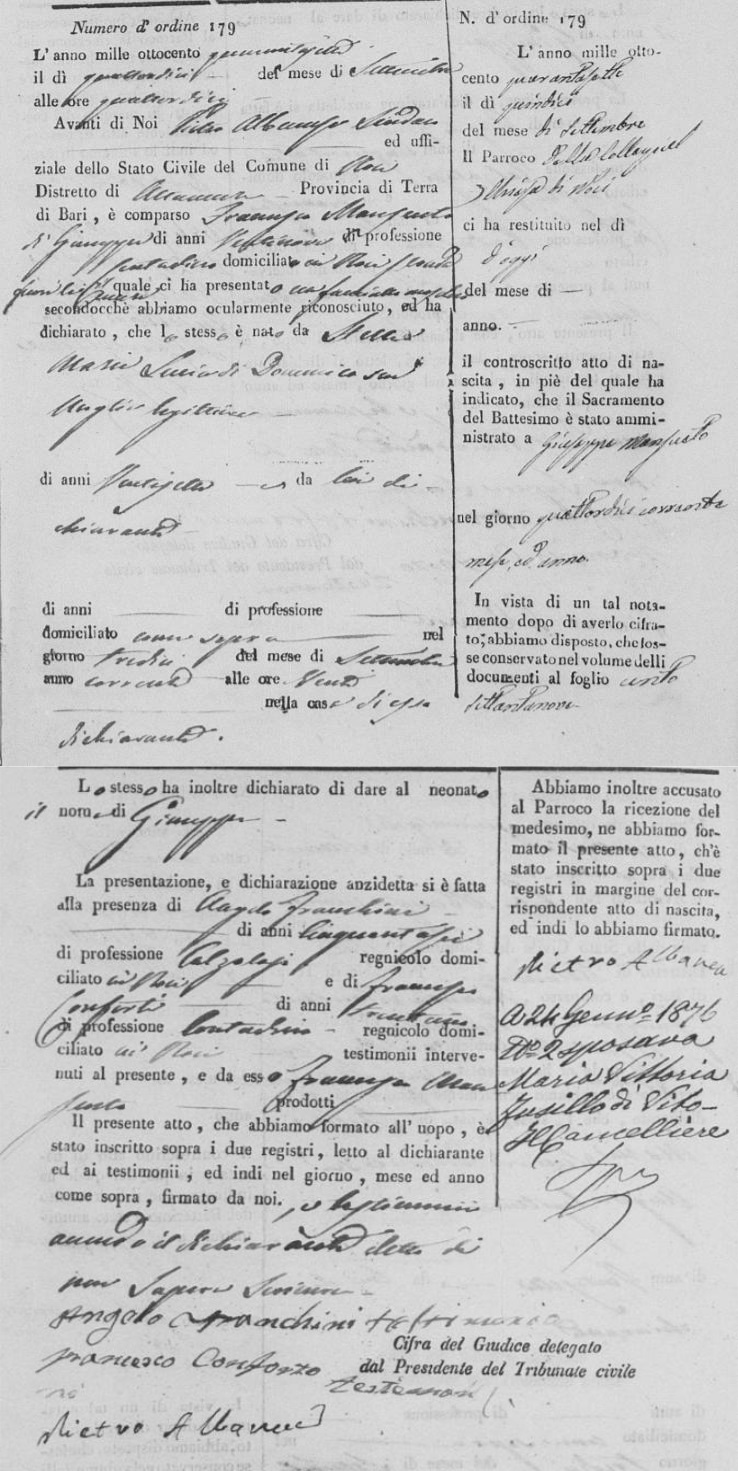 Numero d'ordine 179
L'anno mille ottocento quarantasette
il dì quattordici del mese di Settembre
alle ore quattordici
Avanti di Noi Pietro Albanese Sindaco
ed uffi-
ziale dello Stato Civile del Comune di Noci
Distretto di Altamura Provincia di Terra
di Bari, è comparso Francesco Mansueto
di Giuseppe di anni Ventinove di professione
contadino domiciliato in Noci strada
quale ci ha presentato un fanciullo maschio
secondocchè abbiamo ocularmente riconosciuto, ed ha
dichiarato, che lo stesso è nato da
Maria Lucia di Domenico sua
moglie legittima
di anni Ventisette e da lui di-
chiarante
di anni di professione
domiciliato come sopra nel
giorno tredici del mese di Settembre
anno corrente alle ore Venti
nella casa di esso
dichiarante.
N. d'ordine 179
L'anno mille otto-
cento quarantasette
il dì quindici
del mese di Settembre
Il Parroco della Collegial
Chiesa di Noci
ci ha restituito nel dì
d'oggi
del mese di —
anno. —
il controscritto atto di na-
scita, in piè del quale ha
indicato, che il Sacramento
del Battesimo è stato ammi-
nistrato a Giuseppe Mansueto
nel giorno quattordici corrente
mese, ed anno.
In vista di un tal nota-
mento dopo di averlo cifra-
to, abbiamo disposto, che fos-
se conservato nel volume delli
documenti al foglio cento
settantanove
Lo stesso ha inoltre dichiarato di dare al neonato
il nome di Giuseppe
La presentazione, e dichiarazione anzidetta si è fatta
alla presenza di Angelo Franchini
di anni Cinquantasei
di professione Calzolajo regnicolo domi-
ciliato in Noci e di Francesco
Conforti di anni trentuno
di professione Contadino regnicolo domi-
ciliato in Noci testimonii interve-
nuti al presente, e da esso Francesco Man
sueto prodotti
Il presente atto, che abbiamo formato all'uopo, è
stato inscritto sopra i due registri, letto al dichiarante
ed ai testimonii, ed indi nel giorno, mese ed anno
come sopra, firmato da noi. e testimonii
avendo il dichiarante detto di
non sapere scrivere
Angelo Franchini testimonio
Francesco Conforzo
testimonio
Cifra del Giudice delegato
dal Presidente del Tribunale civile
Pietro Albanese
Abbiamo inoltre accusato
al Parroco la ricezione del
medesimo, ne abbiamo for-
mato il presente atto, ch'è
stato inscritto sopra i due
registri in margine del cor-
rispondente atto di nascita,
ed indi lo abbiamo firmato.
Pietro Albanese
A 24 Genno 1876
No 2 sposava
Maria Vittoria
Fusillo di Vito
Il Cancelliere